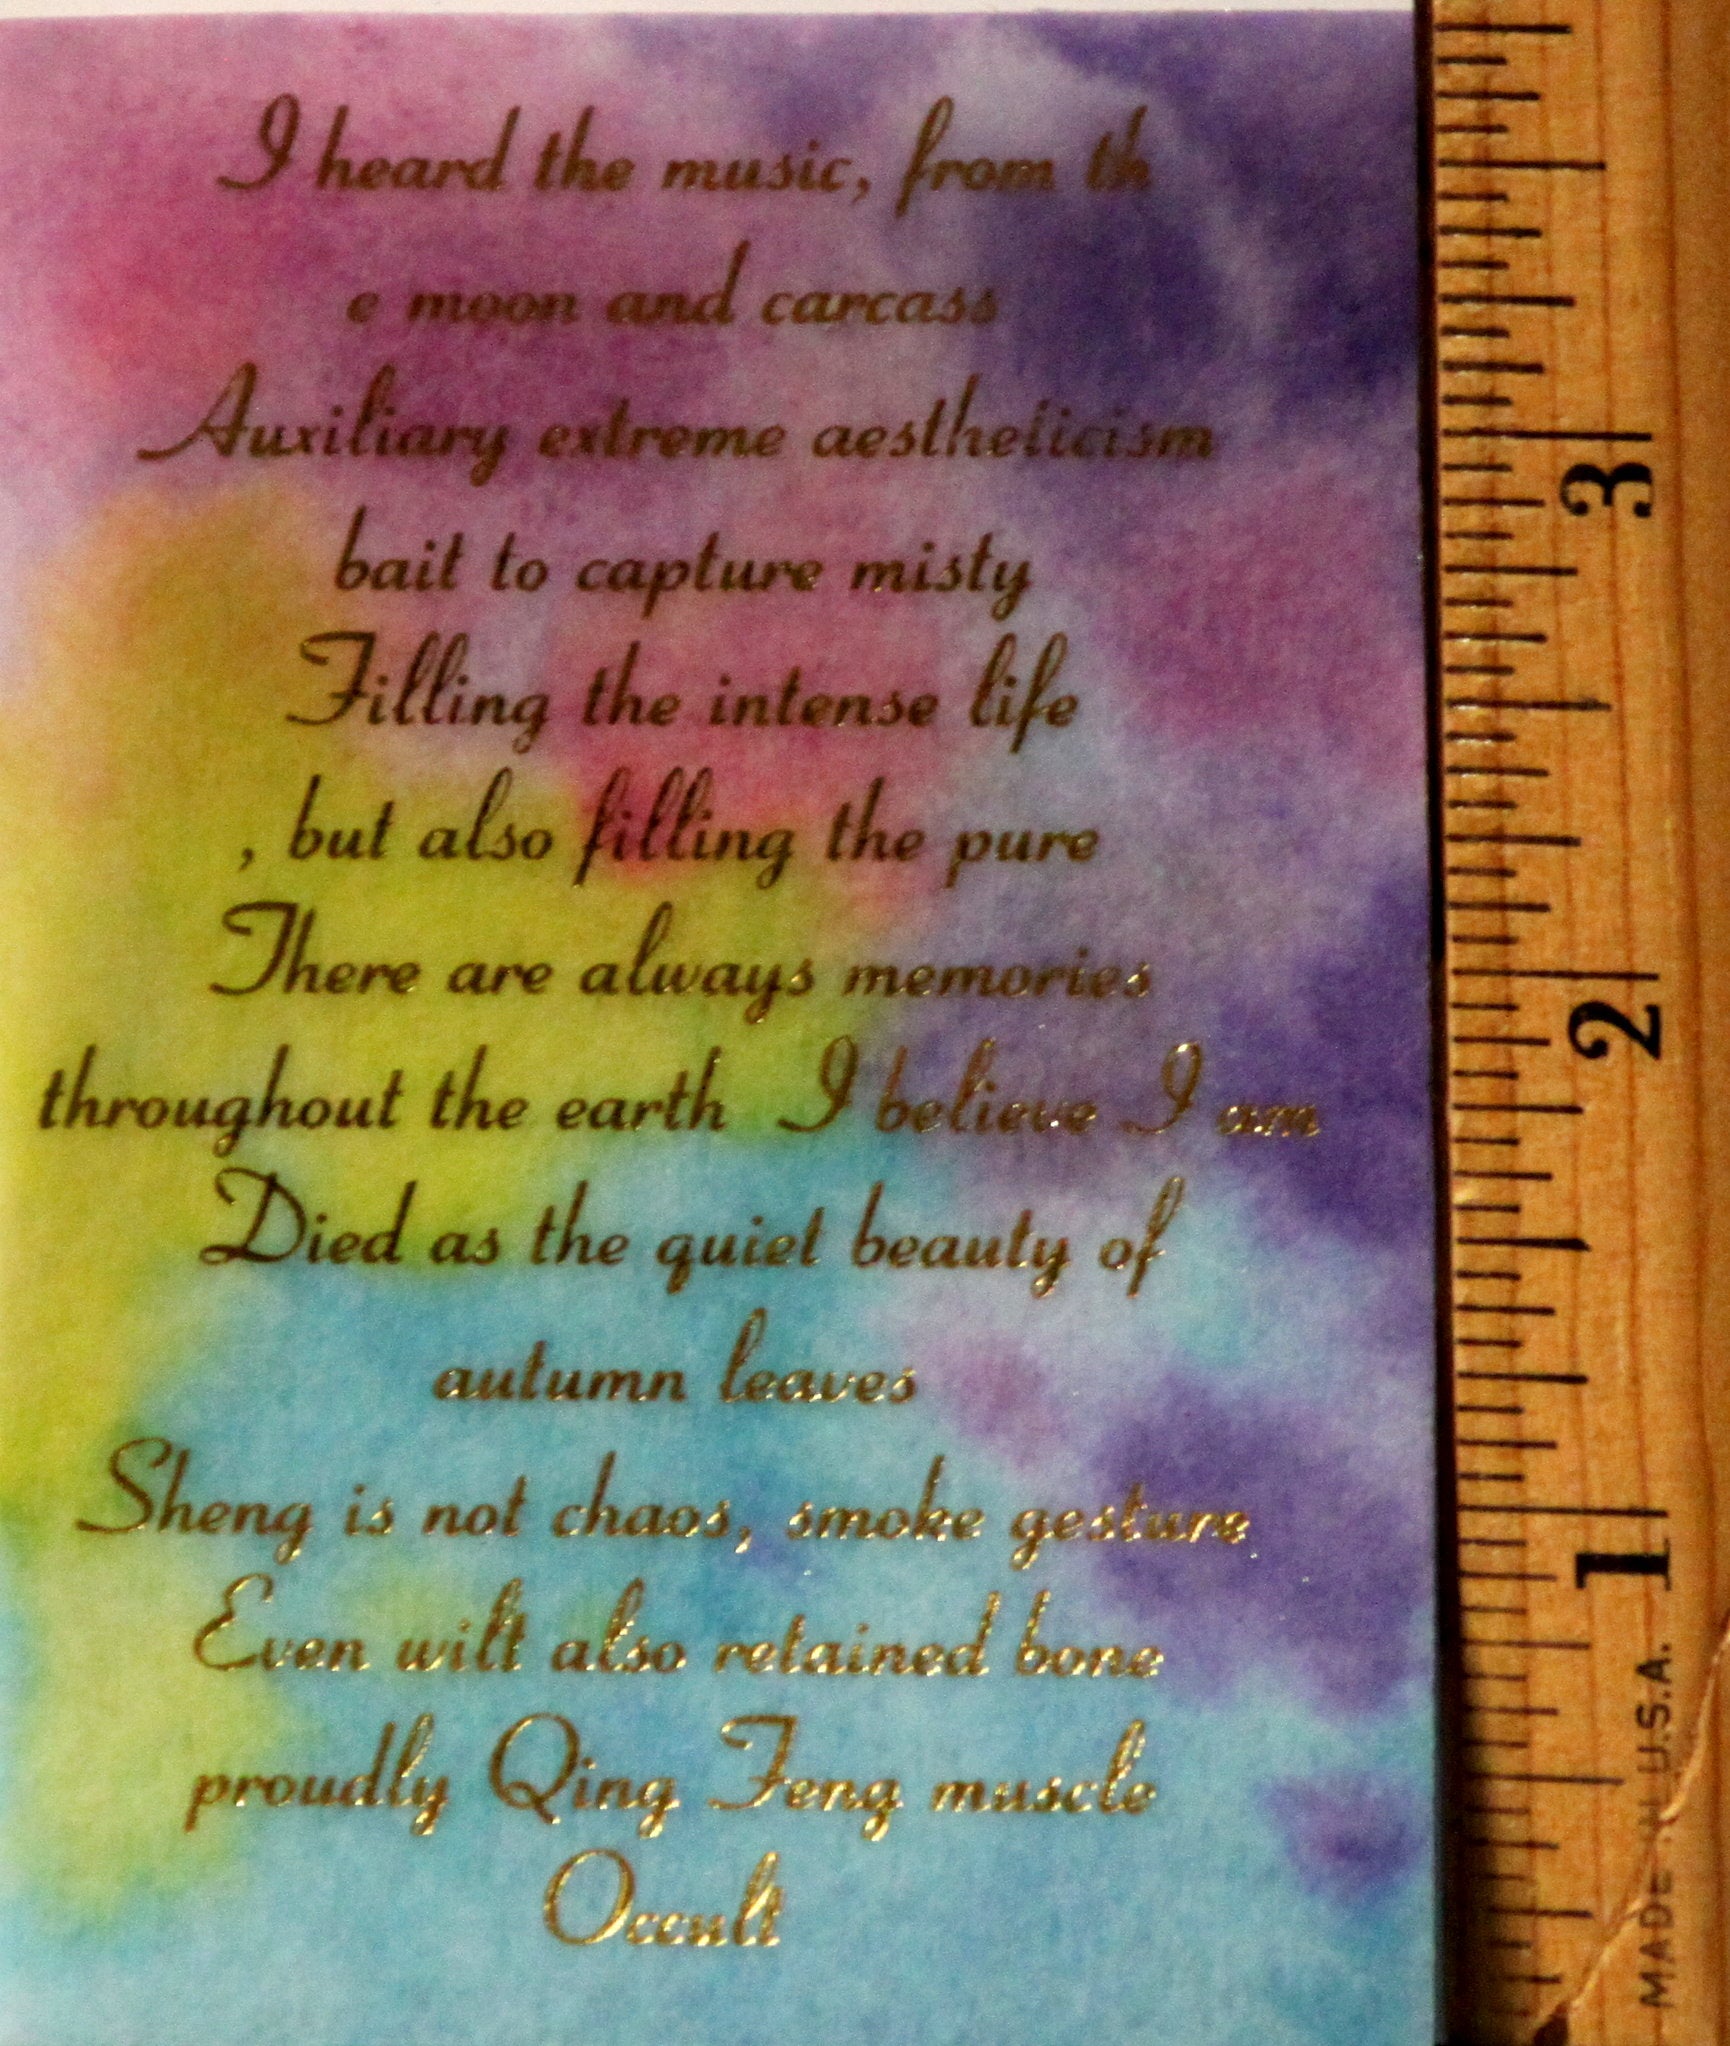 I heard the music, from th
e moon and carcass
Auxiliary extreme aestheticism
bait to capture misty
Filling the intense life
, but also filling the pure
There are always memories
throughout the earth I believe I am
Died as the quiet beauty of
autumn leaves
Sheng is not chaos, smoke gesture
Even wilt also retained bone
proudly Qing Feng muscle
Occult
3
2
1
MADE IN U.S.A.